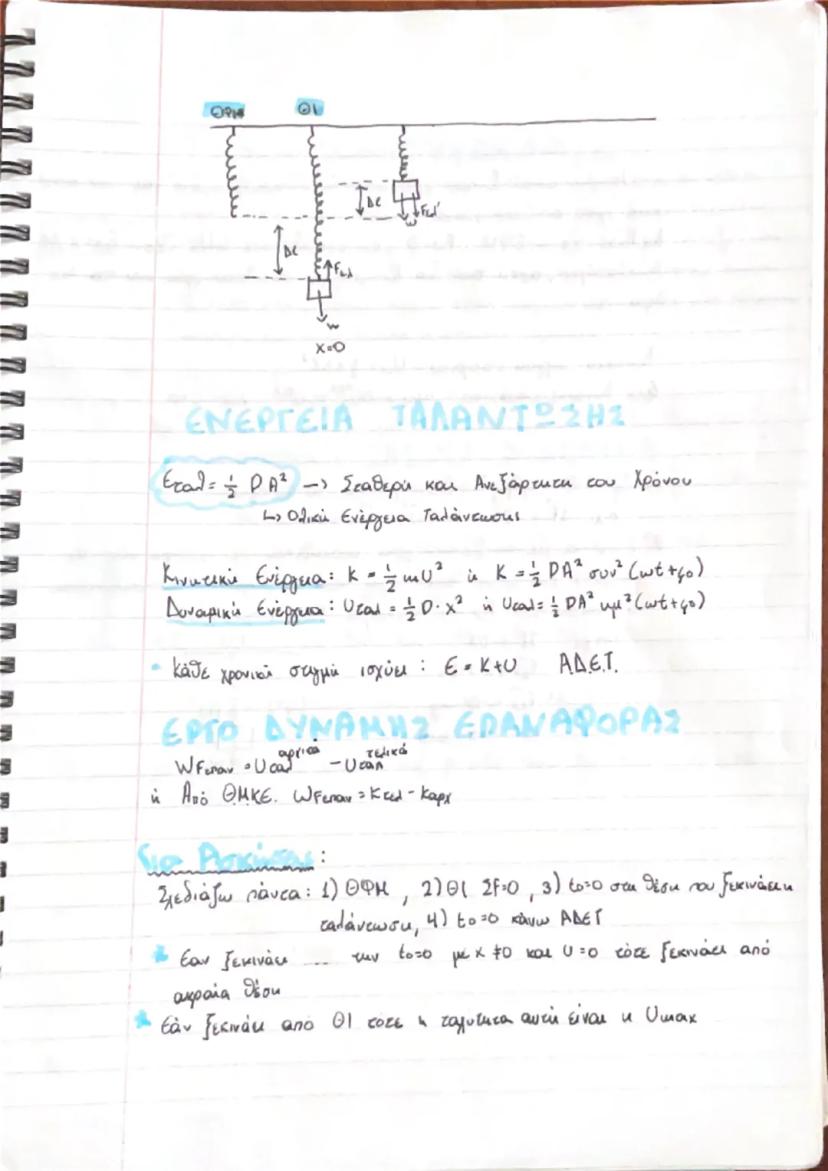 ΘΦΜ ΘΙ
Δℓ Fελ'
w
Δℓ
Fελ
w
x=0
ΕΝΕΡΓΕΙΑ ΤΑΛΑΝΤΩΣΗΣ
Εταλ = 1/2 D A² → Σταθερή και Ανεξάρτητη του Χρόνου
↳ Ολική Ενέργεια Ταλάντωσης
Κινητική Ενέργεια: K = 1/2 mU² ή K = 1/2 DA² συν² (ωt+φ0)
Δυναμική Ενέργεια: Uταλ = 1/2 D· x² ή Uταλ = 1/2 DA² ημ² (ωt+φ0)
• Κάθε χρονική στιγμή ισχύει: E = K+U Α.Δ.Ε.Τ.
ΕΡΓΟ ΔΥΝΑΜΗΣ ΕΠΑΝΑΦΟΡΑΣ
WFεπαν = Uταλ αρχικά - Uταλ τελικά
ή Από Θ.Μ.Κ.Ε. WFεπαν = Kτελ - Kαρχ
Για Ασκήσεις:
Σχεδιάζω πάντα: 1) ΘΦΜ, 2) ΘΙ ΣF=0, 3) to=0 στη θέση που ξεκινάει η
ταλάντωση, 4) to=0 κάνω ΑΔΕΤ
* Εαν ξεκινάει ... την to=0 με x ≠0 και U=0 τότε ξεκινάει από
ακραία θέση
* Εάν ξεκινάει από ΘΙ τότε η ταχύτητα αυτή είναι η Umax